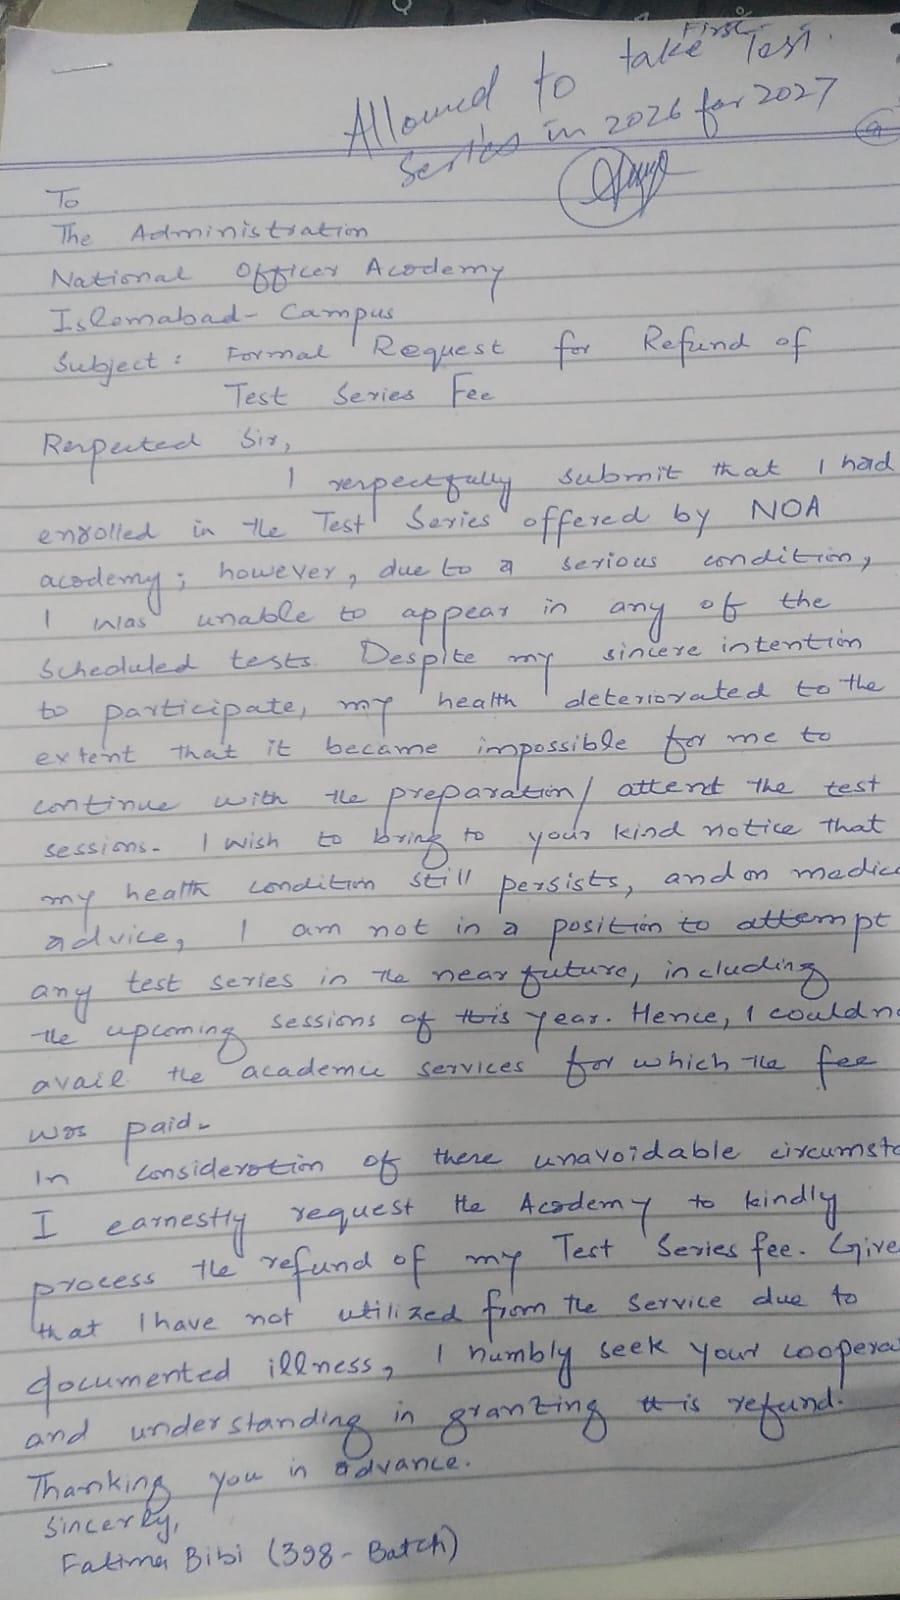 Allowed to take First Test
Series in 2026 for 2027
To
The Administration
National Officer Academy
Islamabad- Campus
Subject: Formal Request for Refund of
Test Series Fee
Respected Sir,
I respectfully submit that I had
enrolled in the Test Series offered by NOA
academy; however, due to a serious condition,
I was unable to appear in any of the
scheduled tests. Despite my sincere intention
to participate, my health deteriorated to the
extent that it became impossible for me to
continue with the preparation/ attend the test
sessions. I wish to bring to your kind notice that
my health condition still persists, and on medica
advice, I am not in a position to attempt
any test series in the near future, including
the upcoming sessions of this year. Hence, I could n
avail the academic services for which the fee
was paid.
In consideration of these unavoidable circumsta
I earnestly request the Academy to kindly
process the refund of my Test Series fee. Give
that I have not utilized from the service due to
documented illness, I humbly seek your coopera
and understanding in granting this refund.
Thanking you in advance.
Sincerly,
Fatima Bibi (398- Batch)